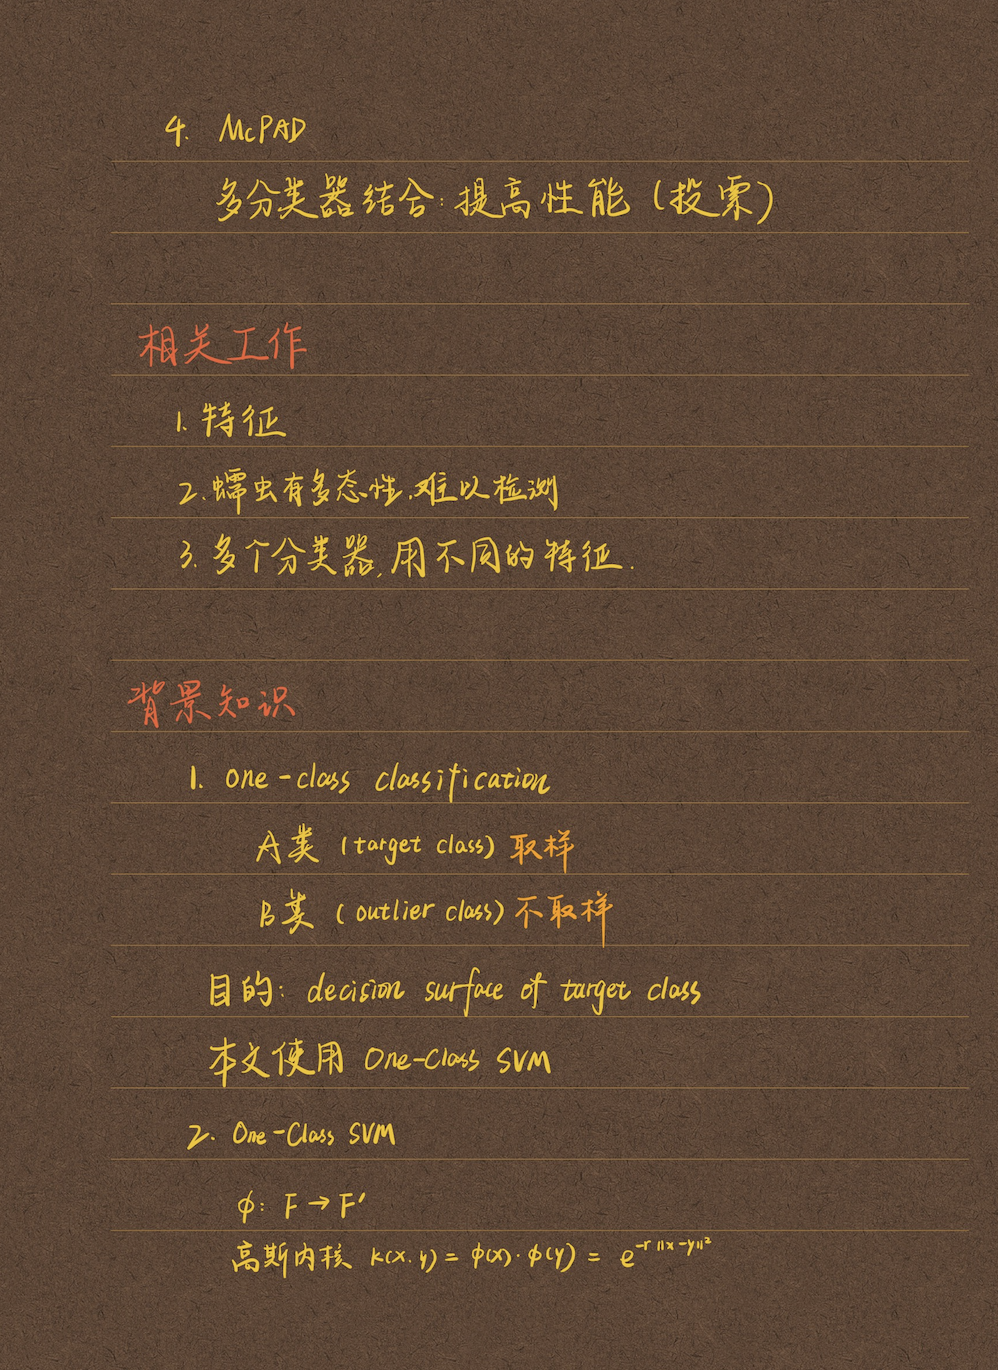 4. McPAD
多分类器结合:提高性能(投票)
相关工作
1. 特征
2. 蠕虫有多态性,难以检测
3. 多个分类器,用不同的特征.
背景知识
1. one-class classification
A类 (target class) 取样
B类 (outlier class) 不取样
目的: decision surface of target class
本文使用 One-Class SVM
2. One-Class SVM
φ: F → F′
高斯内核 K(x,y) = φ(x)·φ(y) = e^{-r||x-y||²}